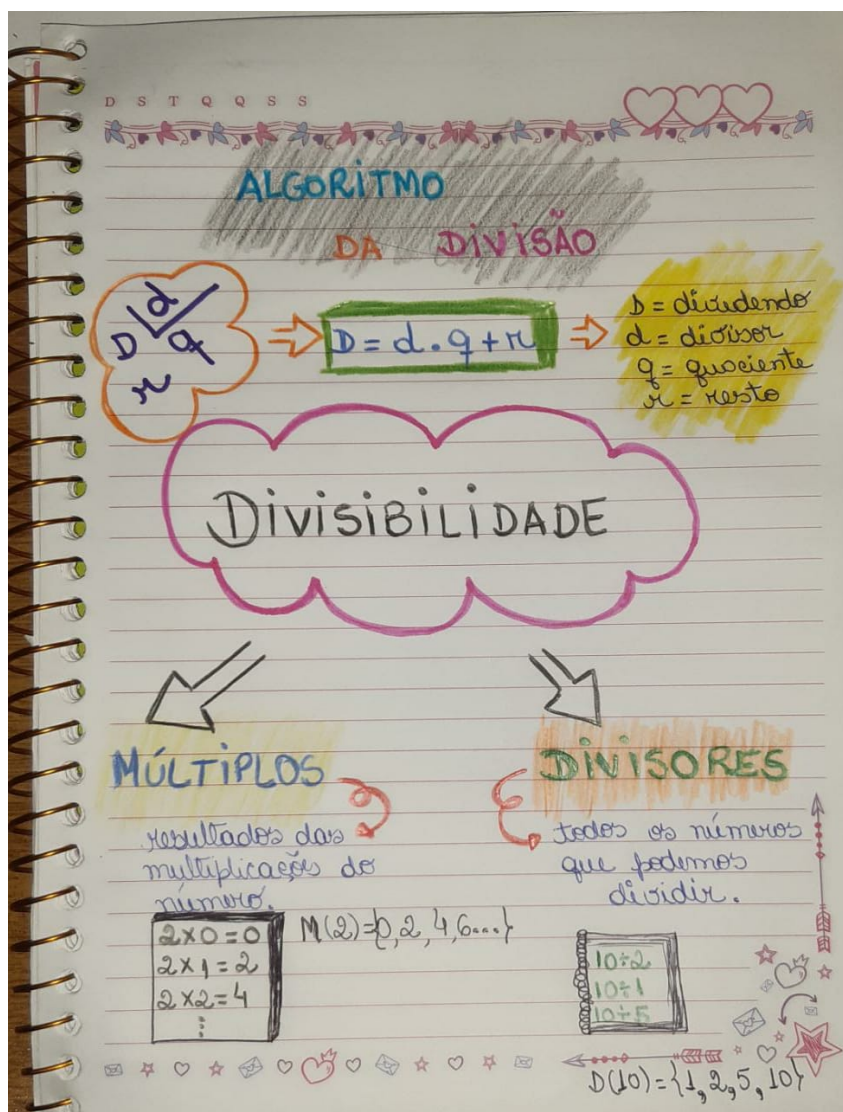 D S T Q Q S S
ALGORITMO
DA DIVISÃO
D d
r q
D = d . q + r
D = dividendo
d = divisor
q = quociente
r = resto
DIVISIBILIDADE
MÚLTIPLOS
resultados das
multiplicações do
número.
2x0=0
2x1=2
2x2=4
⋮
M(2)={0, 2, 4, 6...}
DIVISORES
todos os números
que podemos
dividir.
10÷2
10÷1
10÷5
D(10)={1, 2, 5, 10}